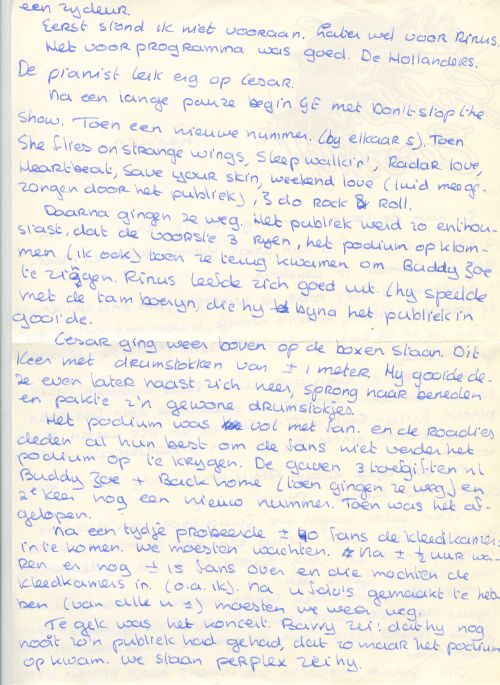 een zydeur.
Eerst stond ik niet vooraan. Later wel voor Rinus.
Het voorprogramma was goed. De Hollanders.
De pianist leek erg op Cesar.
Na een lange pauze begin GE met Don't stop the
show. Toen een nieuwe nummer. (by elkaar 5). Toen
She flies on strange wings, Sleep walkin', Radar love,
Heartbeat, Save your skin, weekend love (luid meege-
zongen door het publiek), I do Rock & Roll.
Daarna gingen ze weg. Het publiek werd zo enthou-
siast, dat de voorste 3 ryen, het podium op klom-
men (ik ook) toen ze terug kwamen om Buddy Joe
te zingen. Rinus leefde zich goed uit (hy speelde
met de tamboeryn, die hy byna het publiek in
gooide.
Cesar ging weer boven op de boxen staan. Dit
keer met drumstokken van ± 1 meter. Hy gooide de-
ze even later naast zich neer, sprong naar beneden
en pakte z'n gewone drumstokjes.
Het podium was vol met fan. en de Roadies
deden al hun best om de fans niet verder het
podium op te krygen. De gaven 3 toegiften nl
Buddy Joe + Back home (toen gingen ze weg) en
2e keer nog een nieuw nummer. Toen was het af-
gelopen.
Na een tydje probeerde ± 40 fans de kleedkamers
in te komen. We moesten wachten. Na ± ½ uur wa-
ren er nog ± 15 fans over en die mochten de
kleedkamers in. (o.a. ik). Na 4 foto's gemaakt te heb-
ben (van alle 4 ±) moesten we weer weg.
Te gek was het koncert. Barry zei: dat hy nog
nooit zo'n publiek had gehad, dat zo maar het podium
op kwam. We staan perplex zei hy.